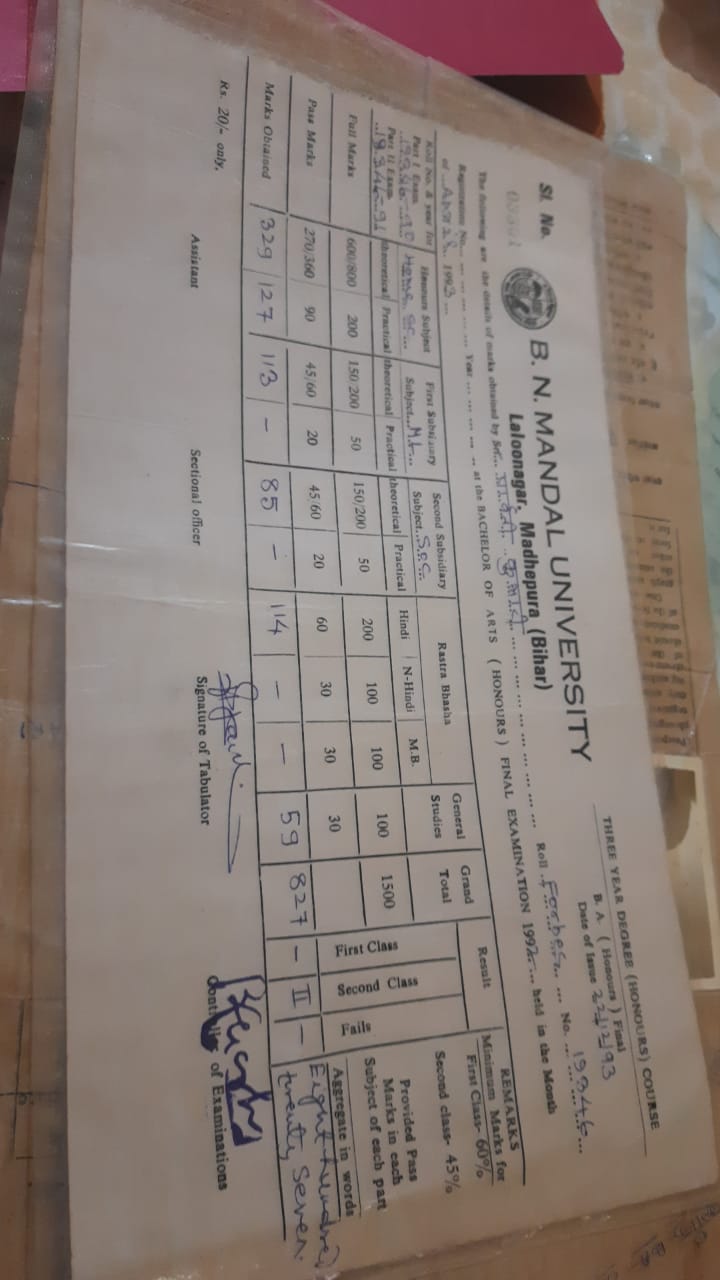 Sl. No.
B. N. MANDAL UNIVERSITY
Laloonagar, Madhepura (Bihar)
THREE YEAR DEGREE (HONOURS) COURSE
B. A. ( Honours ) Final
Date of Issue 22/12/93
The following are the details of marks obtained by Sri... ... ... Roll ..Forbes.. ... No. ... 19346...
Registration No.... ... ... ... ... Year ... ... ... at the BACHELOR OF ARTS ( HONOURS ) FINAL EXAMINATION 1992.... held in the Month
of ... 1993 ...
Roll No. & year for Part I Exam.
Part II Exam.
Honours Subject Home. Sc...
First Subsidiary Subject..M.L...
Second Subsidiary Subject..Soc.
Rastra Bhasha
General Studies
Grand Total
Result
REMARKS
Minimum Marks for
First Class- 60%
Second class- 45%
Provided Pass
Marks in each
Subject of each part
theoretical Practical theoretical Practical theoretical Practical Hindi N-Hindi M.B.
Full Marks 600/800 200 150/200 50 150/200 50 200 100 100 100 1500
Pass Marks 270/360 90 45/60 20 45/60 20 60 30 30 30
First Class Second Class Fails
Aggregate in words
Marks Obtained 329 127 113 - 85 - 114 - - 59 827 - II -
Eight hundred
twenty seven.
Rs. 20/- only.
Assistant
Sectional officer
Signature of Tabulator
Controller of Examinations